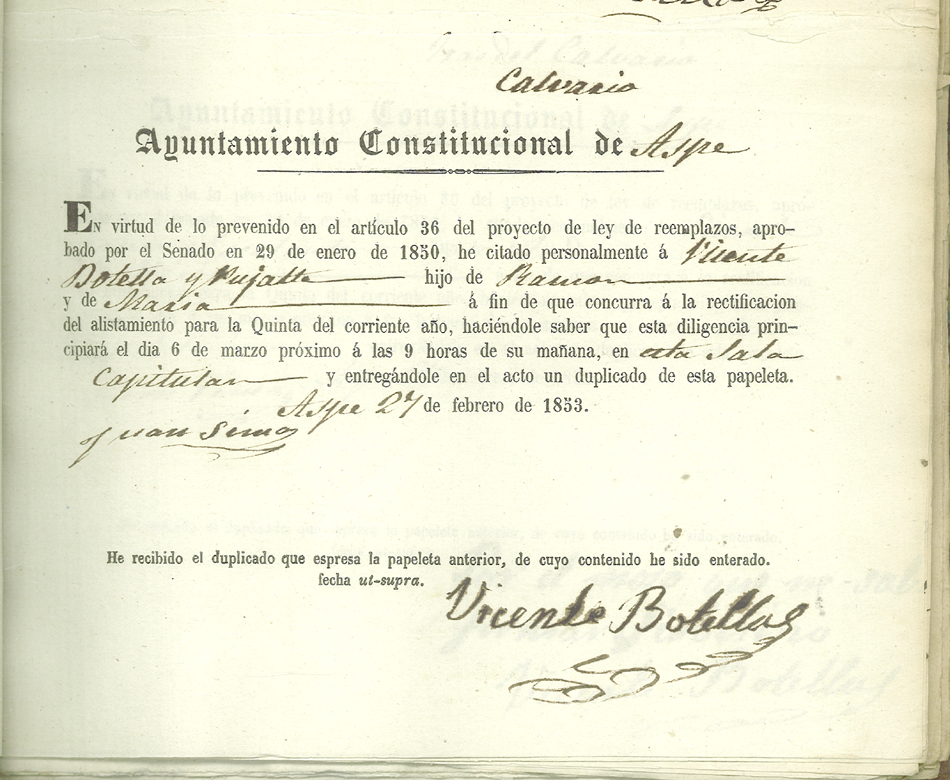 Calvario
Ayuntamiento Constitucional de Aspe
En virtud de lo prevenido en el artículo 36 del proyecto de ley de reemplazos, apro-
bado por el Senado en 29 de enero de 1850, he citado personalmente á Vicente
Botella y Pujalte hijo de Ramon
y de Maria á fin de que concurra á la rectificacion
del alistamiento para la Quinta del corriente año, haciéndole saber que esta diligencia prin-
cipiará el dia 6 de marzo próximo á las 9 horas de su mañana, en esta Sala
Capitular y entregándole en el acto un duplicado de esta papeleta.
Aspe 27 de febrero de 1853.
Juan Simo
He recibido el duplicado que espresa la papeleta anterior, de cuyo contenido he sido enterado.
fecha ut-supra.
Vicente Botella